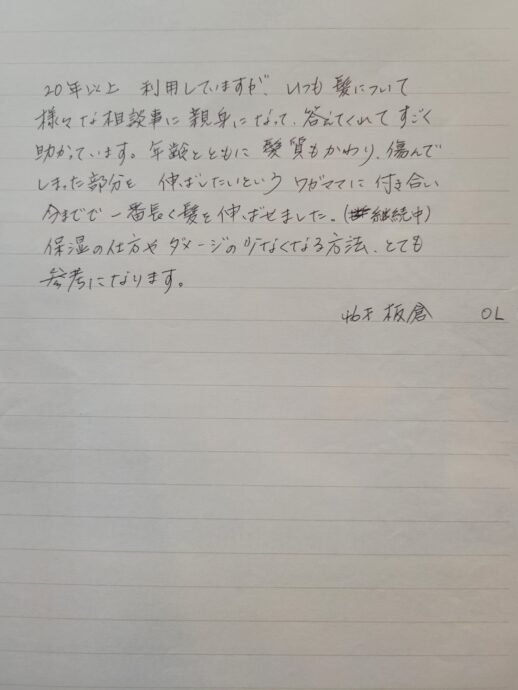 20年以上 利用していますが、いつも髪について
様々な相談事に親身になって、答えてくれてすごく
助かっています。年齢とともに髪質もかわり、傷んで
しまった部分を 伸ばしたいという ワガママに付き合い
今までで一番長く髪を伸ばせました。(継続中)
保湿の仕方やダメージの少なくなる方法、とても
参考になります。
46才 板倉 OL